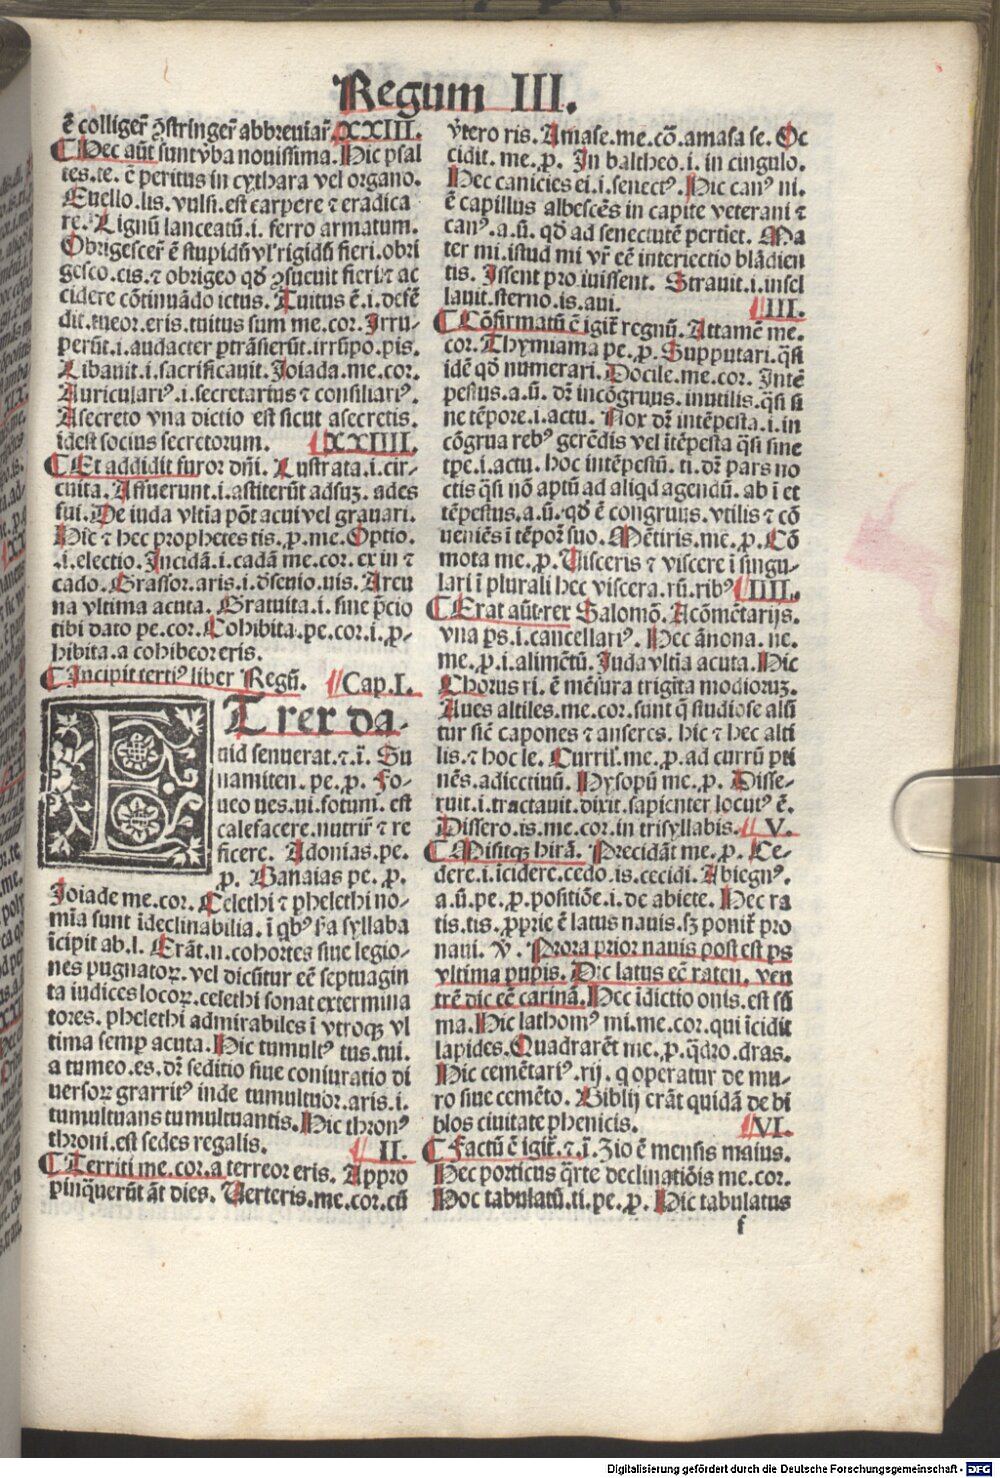 Regum III.
ē colligeꝛ̄ ꝯstringeꝛ̄ abbreuiaꝛ̄. XXIII.
Hec aūt sunt v̄ba nouissima. Hic psal
tes.te. ē peritus in cythara vel organo.
Euello.lis. vulsi. est carpere ⁊ eradica
re. Lignū lanceatū.i. ferro armatum.
Obrigesceꝛ̄ ē stupidū vl̓ rigidū fieri. obri
gesco.cis. ⁊ obrigeo qd̄ ꝯsueuit fieri ⁊ ac
cidere cōtinuādo ictus. Tuitus ē.i. defē
dit. tueor.eris. tuitus sum me.cor. Irru-
perūt.i. audacter ptrāsierūt. irrūpo.pis.
Libauit.i. sacrificauit. Joiada.me.cor.
Auriculariꝰ.i. secretarius ⁊ consiliariꝰ.
Asecreto vna dictio est sicut asecretis.
idest socius secretorum. XXIIII.
Et addidit furor dn̄i. Lustrata.i. cir-
cuita. Affuerunt.i. astiterūt adsuꝫ. ades
fui. De iuda vltīa pōt acui vel grauari.
Hic ⁊ hec prophetes tis. ꝓ. me. Optio.
.i. electio. Incidā.i. cadā me.cor. ex in ⁊
cado. Grassor.aris.i. dsenio.uis. Areu
na vltima acuta. Gratuita.i. sine p̄cio
tibi dato pe.cor. Cohibita.pe.cor.i. ꝓ-
hibita. a cohibeor eris.
Incipit tertiꝰ liber Regū. Cap.I.
ET rex da-
uid senuerat.⁊.ī. Su
namiten. pe. ꝓ. Fo-
ueo ues.ui fotum. est
calefacere. nutriꝛ̄ ⁊ re
ficere. Adonias.pe.
ꝓ. Banaias pe. ꝓ.
Joiade me.cor. Celethi ⁊ phelethi no-
mīa sunt īdeclinabilia. ī qͥbꝰ p̄a syllaba
īcipit ab.l. Erāt.ii. cohortes siue legio-
nes pugnatoꝝ. vel dicūtur eē septuagin
ta iudices locoꝝ. celethi sonat extermina
tores. phelethi admirabiles ī vtroqꝫ vl
tima semp acuta. Hic tumultꝰ tus.tui.
a tumeo.es. dr̄ seditio siue coniuratio di
uersoꝝ grarritꝰ inde tumultuor.aris.i.
tumultuans tumultuantis. Hic thronꝰ
throni. est sedes regalis. II.
Territi me.cor. a terreor eris. Appro
pinq̄uerūt āt dies. Verteris. me.cor. cū
v̄tero ris. Amase.me.cō. amasa se. Oc
cidit. me. ꝓ. In baltheo.i. in cingulo.
Hec canicies ei.i. senectꝰ. Hic canꝰ ni.
ē capillus albescēs in capite veterani ⁊
canꝰ.a.ū. qd̄ ad senectutē pertiet. Ma
ter mi. istud mi vr̄ eē interiectio blādien
tis. Issent pro iuissent. Strauit.i. insel
lauit. sterno.is.aui. III.
Cōfirmatū ē igiꝛ̄ regnū. Attamē me.
cor. Thymiama pe. ꝓ. Supputari. qͣsi
idē qd̄ numerari. Docile.me.cor. Intē
pestus.a.ū. dr̄ incōgruus. inutilis. qͣsi si
ne tēpore.i. actu. Nox dr̄ intēpesta.i. in
cōgrua rebꝰ gerēdis vel itēpesta qͣsi sine
tp̄e.i. actu. hoc intēpestū. ti. dr̄ pars no
ctis qͣsi nō aptū ad aliqd agendū. ab ī et
tēpestus.a.ū. qd̄ ē congruus. vtilis ⁊ cō
ueniēs ī tēpoꝛ̄ suo. Mētiris. me. ꝓ. Cō
mota me. ꝓ. Visceris ⁊ viscere ī singu-
lari ī plurali hec viscera.rū.ribꝰ. IIII.
Erat aūt rex Salomō. Acōmētarijs.
vna ps̄.i. cancellariꝰ. Hec ānona. ne.
me. ꝓ.i. alimētū. Juda vltīa acuta. Hic
Chorus ri. ē mēsura trigīta modioruꝫ.
Aues altiles.me.cor. sunt q̄ studiose alū
tur sic̄ capones ⁊ anseres. hic ⁊ hec alti
lis. ⁊ hoc le. Curril̓. me. ꝓ. ad currū pti
nēs. adiectiuū. Hysopū me. ꝓ. Disse-
ruit.i. tractauit. dixit. sapienter locutꝰ ē.
Dissero.is. me.cor. in trisyllabis. V.
Misitqꝫ hirā. Precidāt me. ꝓ. Ce-
dere.i. īcidere. cedo.is. cecidi. Abiegnꝰ.
a.ū. pe. ꝓ. positiōe.i. de abiete. Hec ra
tis.tis. ꝓprie ē latus nauis. sꝫ poniꝛ̄ pro
naui. v̄. Prora prior nauis post est ps̄
vltima pupis. Dic latus eē ratem. ven
trē dic eē carinā. Hec īdictio onis. est sū
ma. Hic lathomꝰ mi. me.cor. qui īcidit
lapides. Quadrarēt me. ꝓ. q̄dro.dras.
Hic cemētariꝰ.rij. q operatur de mu-
ro siue cemēto. Biblij erāt quidā de bi
blos ciuitate phenicis. VI.
Factū ē igiꝛ̄.⁊.ī. Zio ē mensis maius.
Hec porticus q̄rte declinatiōis me.cor.
Hoc tabulatū.ti. pe. ꝓ. Hic tabulatus
f
Digitalisierung gefördert durch die Deutsche Forschungsgemeinschaft - DFG